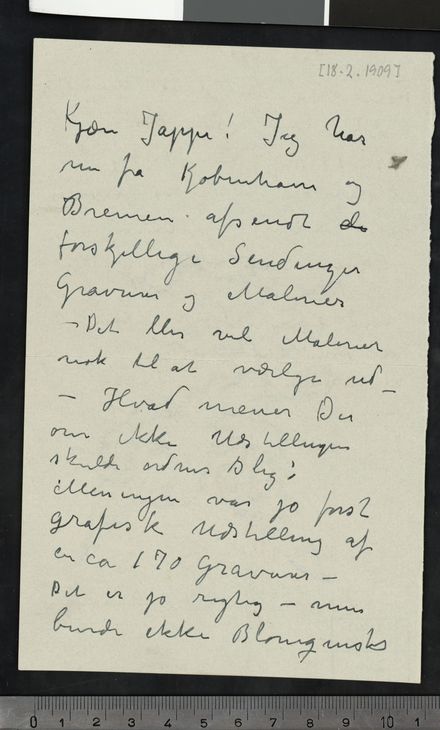 [18.2.1909]
Kjære Jappe! Jeg har
nu fra Kobenhavn og
Bremen afsendt de
forskjellige Sendinger
Gravurer og Malerier
– Det blir vel Malerier
nok til at vælge ud –
– Hvad mener Du
om ikke Udstillingen
skulde ordnes slig:
Meningen var jo først
grafisk Udstilling af
en ca 170 Gravurer –
Det er jo rigtig – men
burde ikke Blomqvists
0 1 2 3 4 5 6 7 8 9 10 1